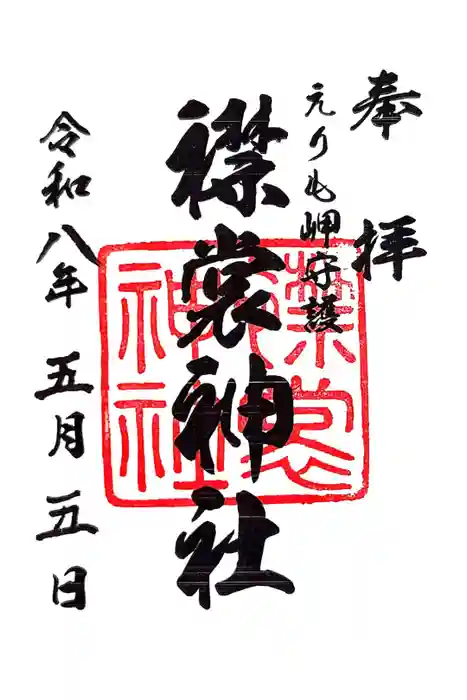 奉拝
えりも岬守護
襟裳神社
襟裳神社
令和八年五月五日